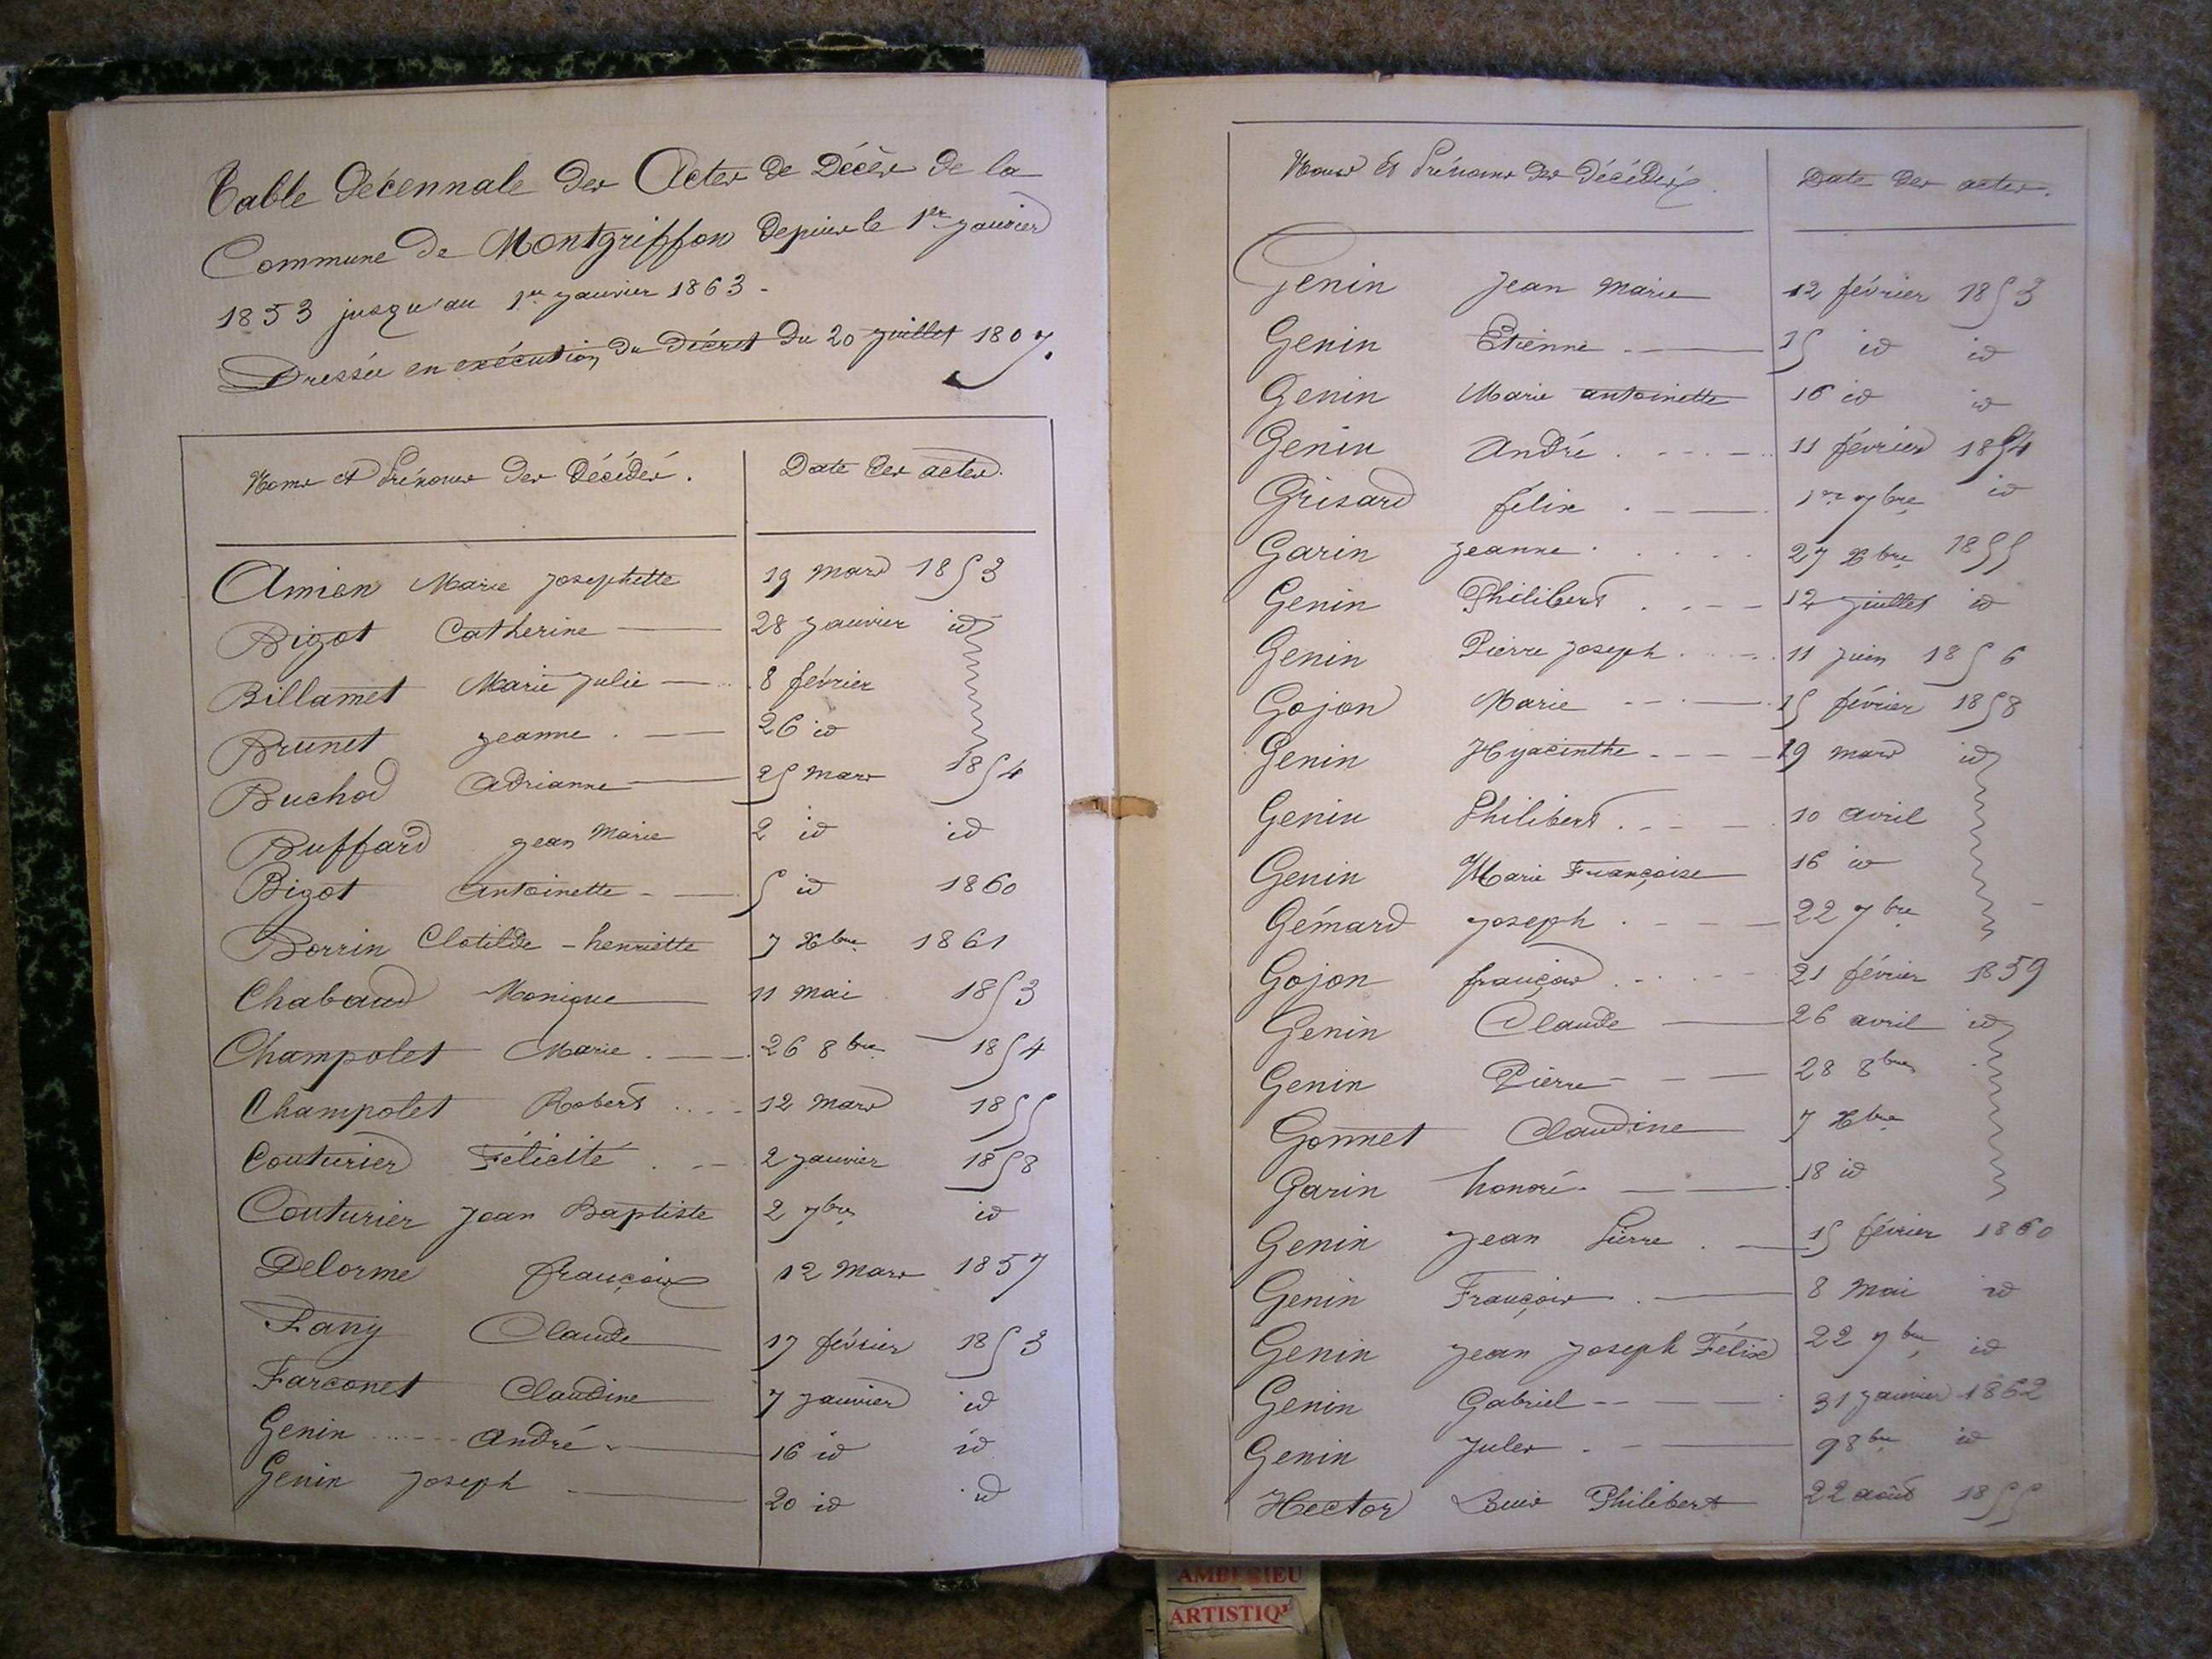 Table décennale des Actes de Décès de la
Commune de Montgriffon depuis le 1er janvier
1853 jusqu'au 1er janvier 1863.
Dressée en exécution du Décret du 20 juillet 1807.
Noms et Prénoms des Décédés. Date des actes.
Amien Marie Josephette 19 mars 1853
Bigot Catherine 28 janvier id
Billamet Marie Julie 8 février
Brunet Jeanne 26 id
Buchod Adrianne 25 mars 1854
Buffard Jean Marie 2 id id
Bigot Antoinette 5 id 1860
Borrin Clotilde - henriette 7 Xbre 1861
Chabaud Monique 11 mai 1853
Champolet Marie 26 8bre 1854
Champolet Robert 12 mars 1855
Couturier Félicité 2 janvier 1858
Couturier Jean Baptiste 2 7bre id
Delorme françois 12 mars 1857
Fany Claude 17 février 1853
Farconet Claudine 7 janvier id
Genin André 16 id id
Genin Joseph 20 id id
Noms et Prénoms des Décédés. Date des actes.
Genin Jean Marie 12 février 1853
Genin Etienne 15 id id
Genin Marie antoinette 16 id id
Genin André 11 février 1854
Grisard félix 1er 7bre id
Garin Jeanne 27 Xbre 1855
Genin Philibert 12 juillet id
Genin Pierre Joseph 11 juin 1856
Gojon Marie 15 février 1858
Genin Hyacinthe 19 mars id
Genin Philibert 10 avril
Genin Marie Françoise 16 id
Gémard Joseph 22 7bre
Gojon françois 21 février 1859
Genin Claude 26 avril id
Genin Pierre 28 8bre
Gonnet Claudine 7 Xbre
Garin honoré 18 id
Genin Jean Pierre 15 février 1860
Genin François 8 mai id
Genin Jean Joseph Félix 22 7bre id
Genin Gabriel 31 janvier 1862
Genin Jules 9 8bre id
Hector Louis Philibert 22 août 1855
AMBERIEU
ARTISTIQ